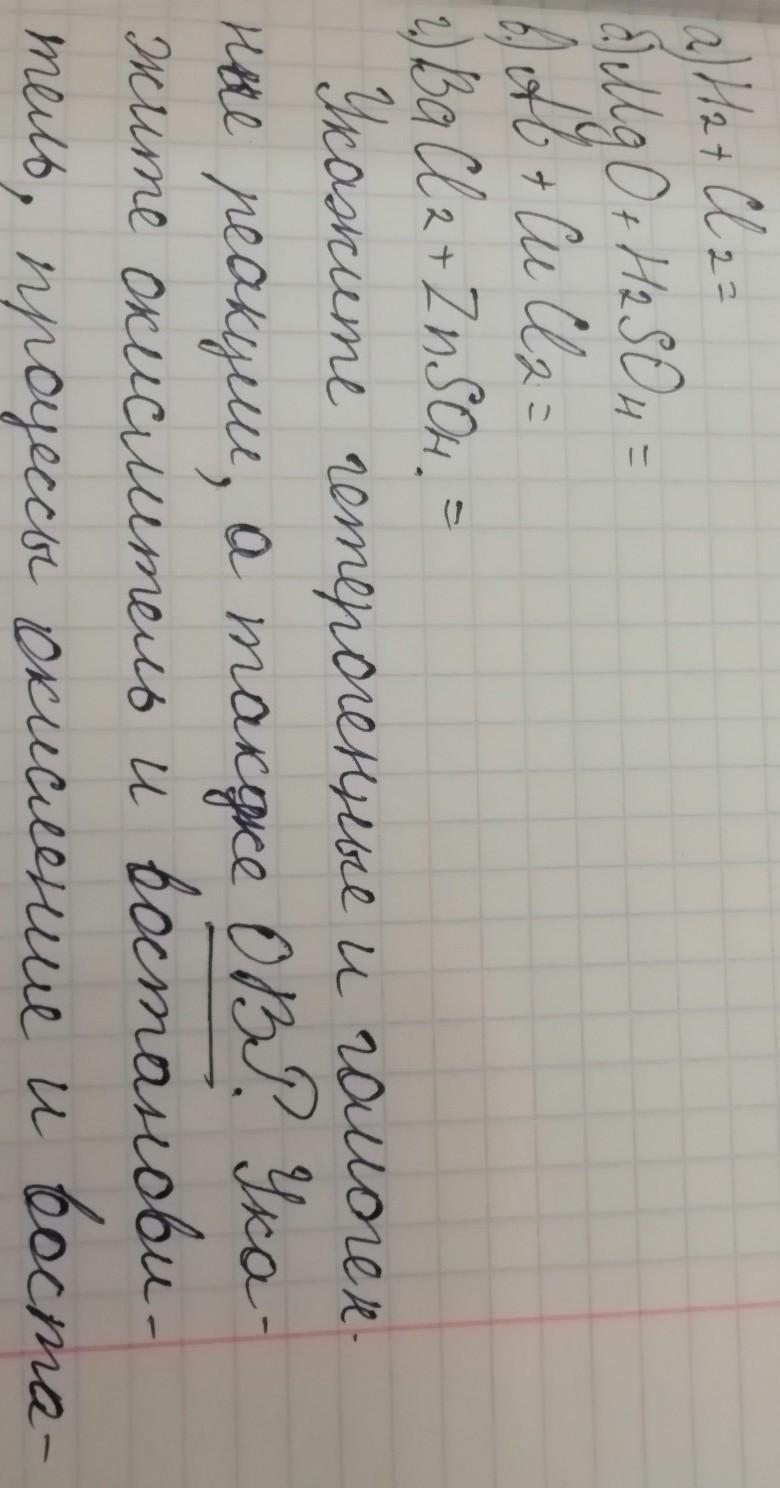 а) H2 + Cl2 =
б) MgO + H2SO4 =
в) Al + CuCl2 =
г) BaCl2 + ZnSO4. =
Укажите гетерогенные и гомоген-
ные реакции, а также ОВР. Ука-
жите окислитель и востанови-
тель, процессы окисление и воста-